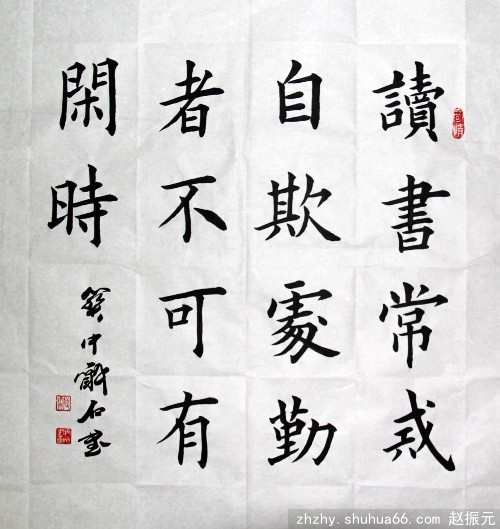 讀書常戒
自欺處勤
者不可有
閑時
zhzhy.shuhua66.com 赵振元